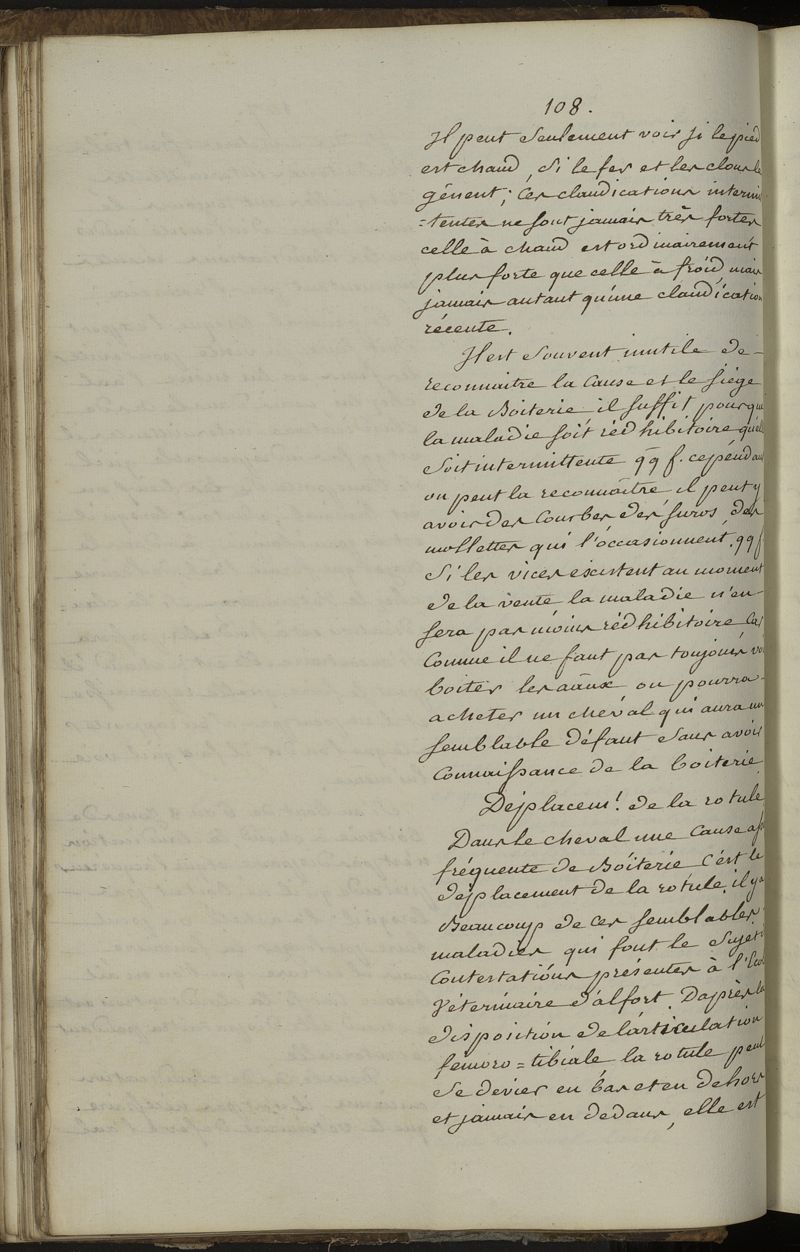 108.
Il peut seulement voir si le pied
est chaud, si le fer et les clous le
gênent; Ces claudications intermi
=tentes ne sont jamais très fortes
celle à chaud est ordinairement
plus forte que celle à froid, mais
jamais autant qu'une claudication
récente.
Il est souvent inutile de
reconnaitre la Cause et le siége
de la Boiterie il suffit pour que
la maladie soit rédhibitoire quelle
soit intermittente qq f. cependant
on peut la reconnaître il peut y
avoir des Courbes des suros, des
mollettes qui l'occasionnent. qq f
Si les vices existent au moment
de la vente la maladie n'en
sera pas moins rédhibitoire Car
Comme il ne faut pas toujours voir
boiter les aäux on pourra
acheter un cheval qui aura un
semblable défaut sans avoir
Connaissance de la boiterie
Déplacemt. de la rotule
Dans le cheval une Cause ass
fréquente de Boiterie c'est le
déplacement de la rotule, il y a
Beaucoup de ces semblables
maladies qui font le Sujet
Contestations présentes à l'Ecole
Vétérinaire d'alfort. Daprès la
disposition de l'articulation
femoro=tibiale la rotule peut
se devier en bas et en dehors
et jamais en dedans, elle est